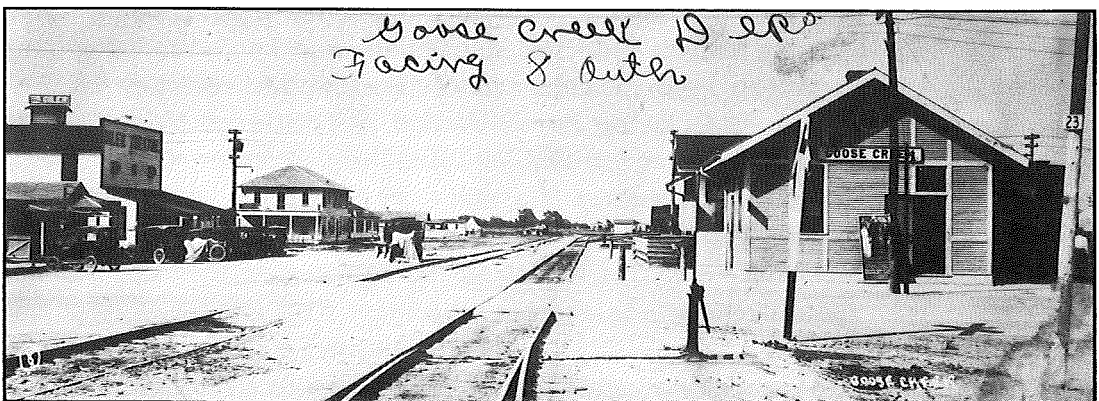 Goose Creek Depo
Facing South
GOOSE CREEK
23
137
GOOSE CREEK